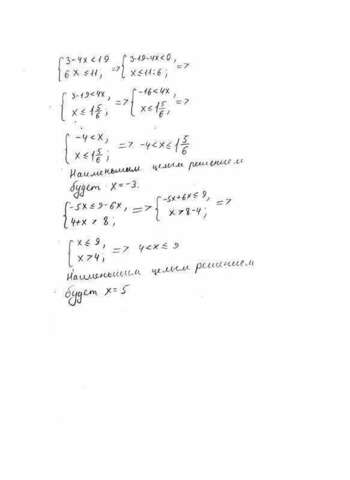 {3-4x<19, 6x≤11, => {3-19-4x<0, x≤11:6; =>
{3-19<4x, x≤1 5/6; => {-16<4x, x≤1 5/6; =>
{-4<x, x≤1 5/6; => -4<x≤1 5/6
Наименьшим целым решением
будет x=-3.
{-5x≤9-6x, 4+x>8; => {-5x+6x≤9, x>8-4; =>
{x≤9, x>4; => 4<x≤9
Наименьшим целым решением
будет x=5